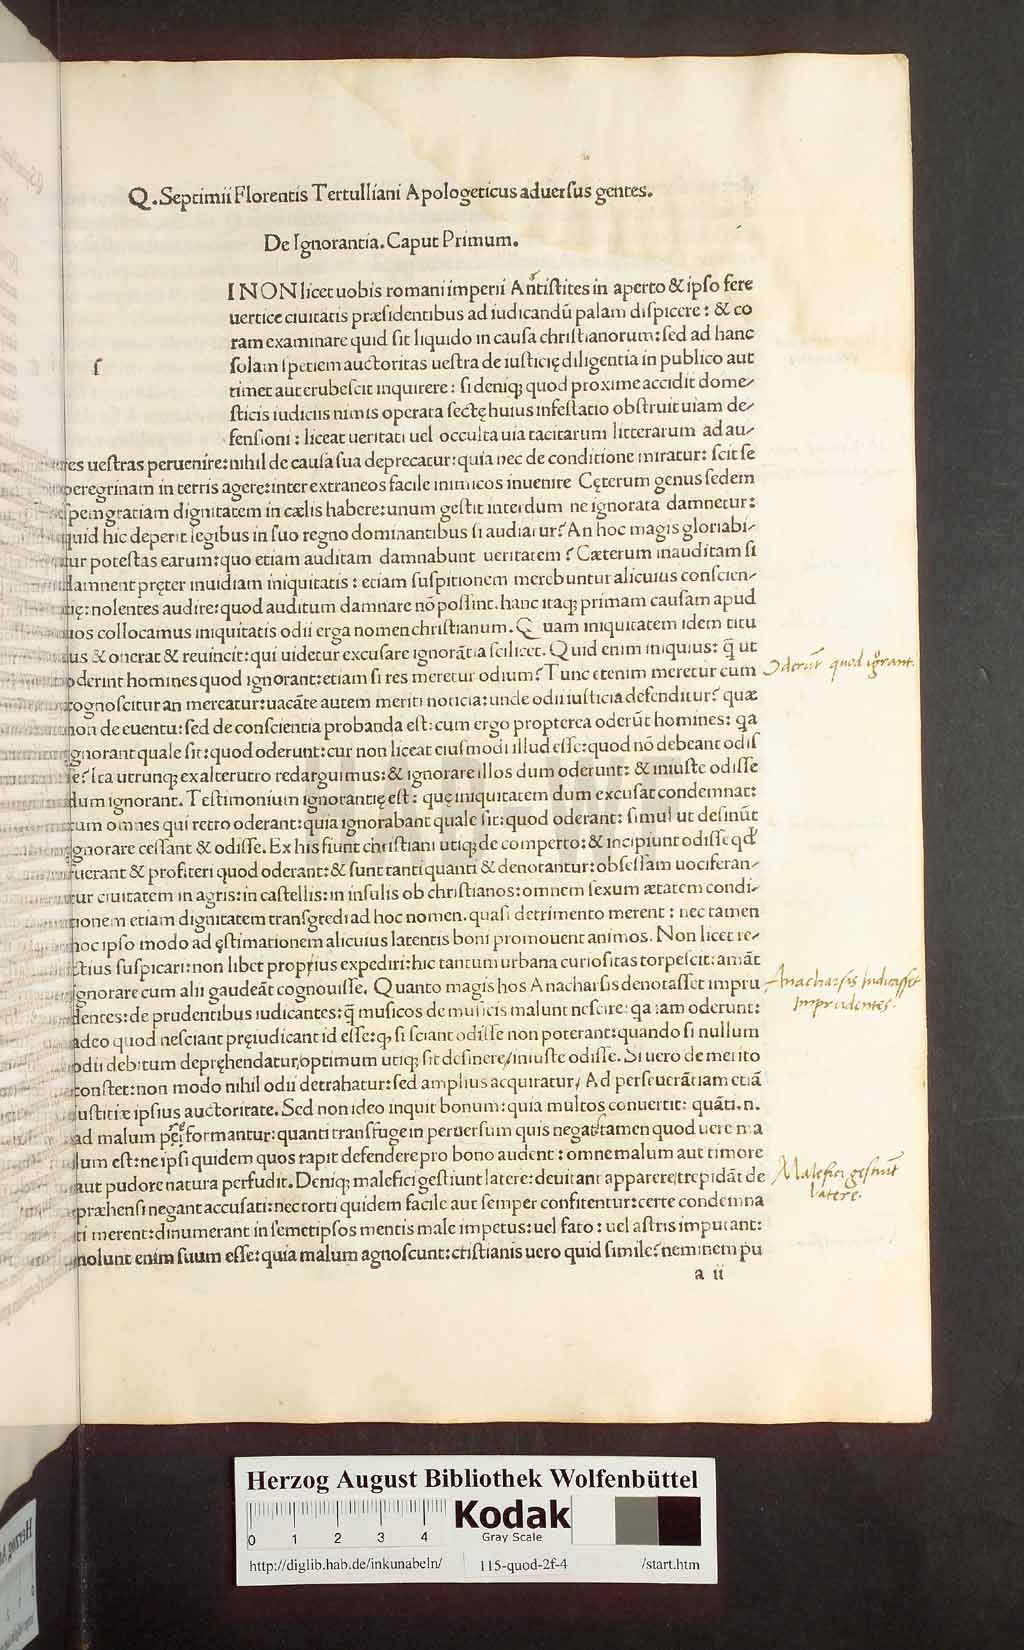 Q. Septimii Florentis Tertulliani Apologeticus aduersus gentes.
De Ignorantia. Caput Primum.
I NON licet uobis romani imperii Antistites in aperto & ipso fere
uertice ciuitatis præsidentibus ad iudicandū palam dispicere: & co
ram examinare quid sit liquido in causa christianorum: sed ad hanc
ſ
solam spetiem auctoritas uestra de iusticię diligentia in publico aut
timet aut erubescit inquirere: si deniq; quod proxime accidit dome/
sticis iudiciis nimis operata sectę huius infestatio obstruit uiam de/
fensioni: liceat ueritati uel occulta uia tacitarum litterarum ad au/
res uestras peruenire: nihil de causa sua deprecatur: quia nec de conditione miratur: scit se
peregrinam in terris agere: inter extraneos facile inimicos inuenire Cęterum genus sedem
spem gratiam dignitatem in cælis habere: unum gestit interdum ne ignorata damnetur:
quid hic deperit legibus in suo regno dominantibus si audiatur? An hoc magis gloriabi/
tur potestas earum: quo etiam auditam damnabunt ueritatem? Cæterum inauditam si
damnent pręter inuidiam iniquitatis: etiam suspitionem merebuntur alicuius conscien/
tię: nolentes audire: quod auditum damnare nō possint. hanc itaq; primam causam apud
uos collocamus iniquitatis odii erga nomen christianum. Quam iniquitatem idem titu
lus & onerat & reuincit: qui uidetur excusare ignorātia scilicet. Quid enim iniquius: q̄ ut
oderint homines quod ignorant: etiam si res meretur odium? Tunc etenim meretur cum
Oderūt quod igorant.
cognoscitur an mereatur: uacāte autem meriti noticia: unde odii iusticia defenditur? quæ
non de euentu: sed de conscientia probanda est: cum ergo propterea oderūt homines: qa
ignorant quale sit: quod oderunt: cur non liceat eiusmodi illud esse: quod nō debeant odis
se? Ita utrunq; ex alterutro redarguimus: & ignorare illos dum oderunt: & iniuste odisse
dum ignorant. Testimonium ignorantię est: quę iniquitatem dum excusat condemnat:
cum omnes qui retro oderant: quia ignorabant quale sit: quod oderant: simul ut desinūt
ignorare cessant & odisse. Ex his fiunt christiani utiq; de comperto: & incipiunt odisse qđ
fuerant & profiteri quod oderant: & sunt tanti quanti & denotantur: obsessam uociferan/
tur ciuitatem in agris: in castellis: in insulis ob christianos: omnem sexum ætatem condi/
tionem etiam dignitatem transgredi ad hoc nomen. quasi detrimento merent: nec tamen
hoc ipso modo ad ęstimationem alicuius latentis boni promouent animos. Non licet re/
ctius suspicari: non libet proprius expediri: hic tantum urbana curiositas torpescit: amāt
ignorare cum alii gaudeāt cognouisse. Quanto magis hos Anacharsis denotasset impru
Anacharsis Iudicasset
Imprudentes.
dentes: de prudentibus iudicantes: q̄ musicos de musicis malunt nescire: qa iam oderunt:
adeo quod nesciant pręiudicant id esse: q, si sciant odisse non poterant: quando si nullum
odii debitum depręhendatur, optimum utiq; sit desinere/ iniuste odisse. Si uero de merito
constet: non modo nihil odii detrahatur: sed amplius acquiratur/ Ad perseuerātiam etiā
iustitiæ ipsius auctoritate. Sed non ideo inquit bonum: quia multos conuertit: quāti. n.
ad malum formantur: quanti transfuge in peruersum quis negat/ tamen quod uere ma
lum est: ne ipsi quidem quos rapit defendere pro bono audent: omne malum aut timore
aut pudore natura perfudit. Deniq; malefici gestiunt latere: deuitant apparere: trepidāt de
Malefici gestiunt
latere.
præhensi negant accusati: nec torti quidem facile aut semper confitentur: certe condemna
ti merent: dinumerant in semetipsos mentis male impetus: uel fato: uel astris imputant:
nolunt enim suum esse: quia malum agnoscunt: ctistianis uero quid simile? neminem pu
a ii
Herzog August Bibliothek Wolfenbüttel
0 1 2 3 4
Kodak
Gray Scale
http://diglib.hab.de/inkunabeln/ 115-quod-2f-4 /start.htm